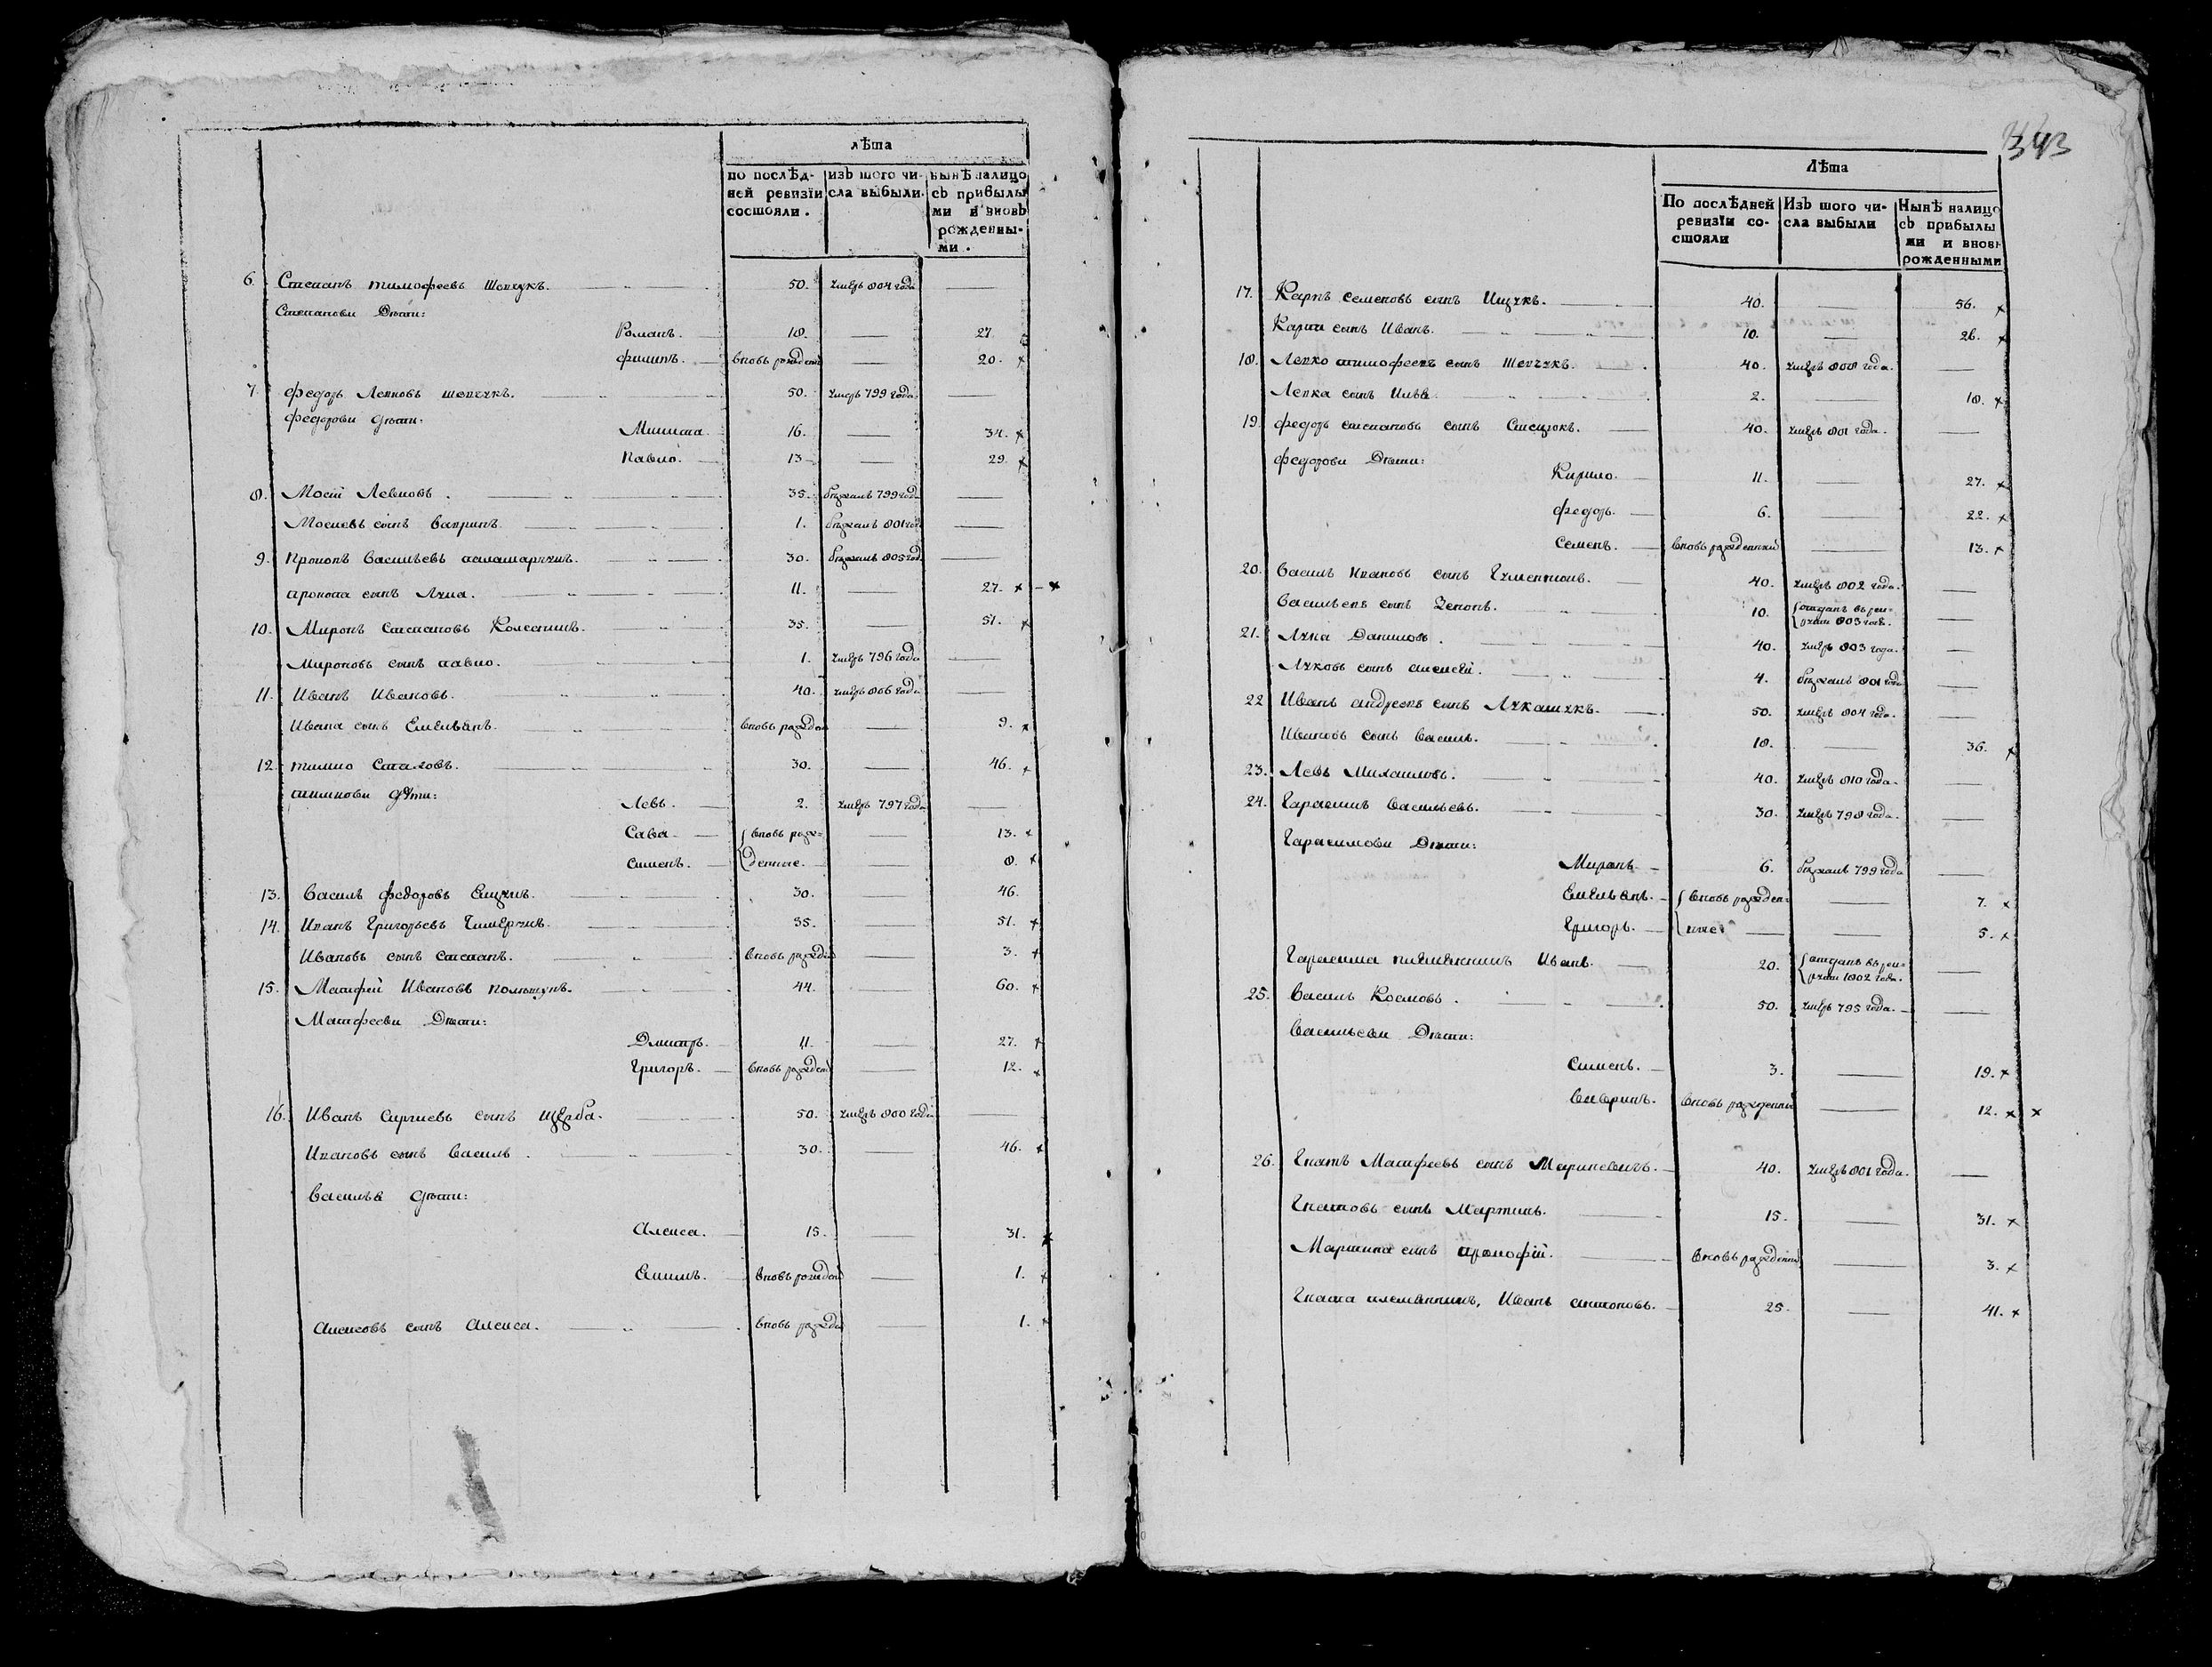 лѣта
по послѣд- изъ того чи- нынѣ налицо
ней ревизїи сла выбыли. съ прибылы
состояли. ми и вновь
рожденны-
ми.
6. Степанъ тимофеевъ Шевчукъ. 50. умеръ 804 года
Степановы Дети:
Романъ. 18. 27
филипъ. вновь рожденъ 20.
7. федоръ Левковъ шевчукъ. 50. умеръ 799 года
федоровы дети:
Микита. 16. 34.
Павло. 13 29.
8. Мосiй Левковъ. 35. бежалъ 799 год
Мосиевъ сынъ 1. бежалъ 801 год
9. Прокопъ Васильевъ 30. бежалъ 805 год
прокопа сынъ Лука. 11. 27.
10. Миронъ степановъ Колесникъ. 35. 51.
Мироновъ сынъ павло. 1. умеръ 796 года
11. Иванъ Ивановъ. 40. умеръ 806 года
Ивана сынъ Емельянъ. вновь рожден 9.
12. тимко 30. 46.
тимкови дѣти:
Левъ. 2. умеръ 797 года
Сава вновь рож= 13.
сименъ. денные. 8.
13. Василь федоровъ 30. 46.
14. Иванъ Григорьевъ 35. 51.
Ивановъ сынъ степанъ. вновь рожден 3.
15. Матфей Ивановъ 44. 60.
Матфееви Дети:
Дмитръ. 11. 27.
Григоръ. вновь рожден 12.
16. Иванъ Сергиевъ сынъ щерба. 50. умеръ 800 года
Ивановъ сынъ Василь. 30. 46.
Василья дети:
Алекса. 15. 31.
вновь рожден 1.
сынъ Алекса. вновь рожден 1.
343
Лѣта
По послѣдней Изъ того чи- Нынѣ налицо
ревизїи со- сла выбыли съ прибылы
стояли ми и вновь
рожденными
17. Карпъ семеновъ сынъ Ищукъ. 40. 56.
Карпа сынъ Иванъ. 10. 26.
18. Левко тимофеевъ сынъ Шевчукъ. 40. умеръ 808 года.
Левка сынъ Илья. 2. 18.
19. федоръ степановъ сынъ 40. умеръ 801 года.
федорови Дети:
Кирило. 11. 27.
федоръ. 6. 22.
Семенъ. вновь рожденный 13.
20. Василь Ивановъ сынъ 40. умеръ 802 года.
Васильевъ сынъ Зенонъ. 10. отданъ въ рек=
руты 803 года.
21. Лука Даниловъ. 40. умеръ 803 года.
Луковъ сынъ алексей. 4. бежалъ 801 года
22 Иванъ андреевъ сынъ Лукашукъ. 50. умеръ 804 года.
Ивановъ сынъ Василь. 18. 36.
23. Левъ Михайловъ. 40. умеръ 810 года.
24. Герасимъ Васильевъ. 30. умеръ 798 года.
Герасимови Дети:
Миронъ 6. бежалъ 799 года
Емельянъ. вновь рожден= 7.
Григоръ. ные 5.
Герасима племянникъ Иванъ. 20. отданъ въ рек=
руты 1802 года.
25. Василь Космовъ. 50. умеръ 795 года.
Васильеви Дети:
Сименъ. 3. 19.
вновь рожденный 12.
26. Гнатъ Матфеевъ сынъ 40. умеръ 801 года.
Гнатовъ сынъ Мартинъ. 15. 31.
Мартина сынъ прокофiй. вновь рожденный 3.
Гната племянникъ, Иванъ антоновъ. 25. 41.